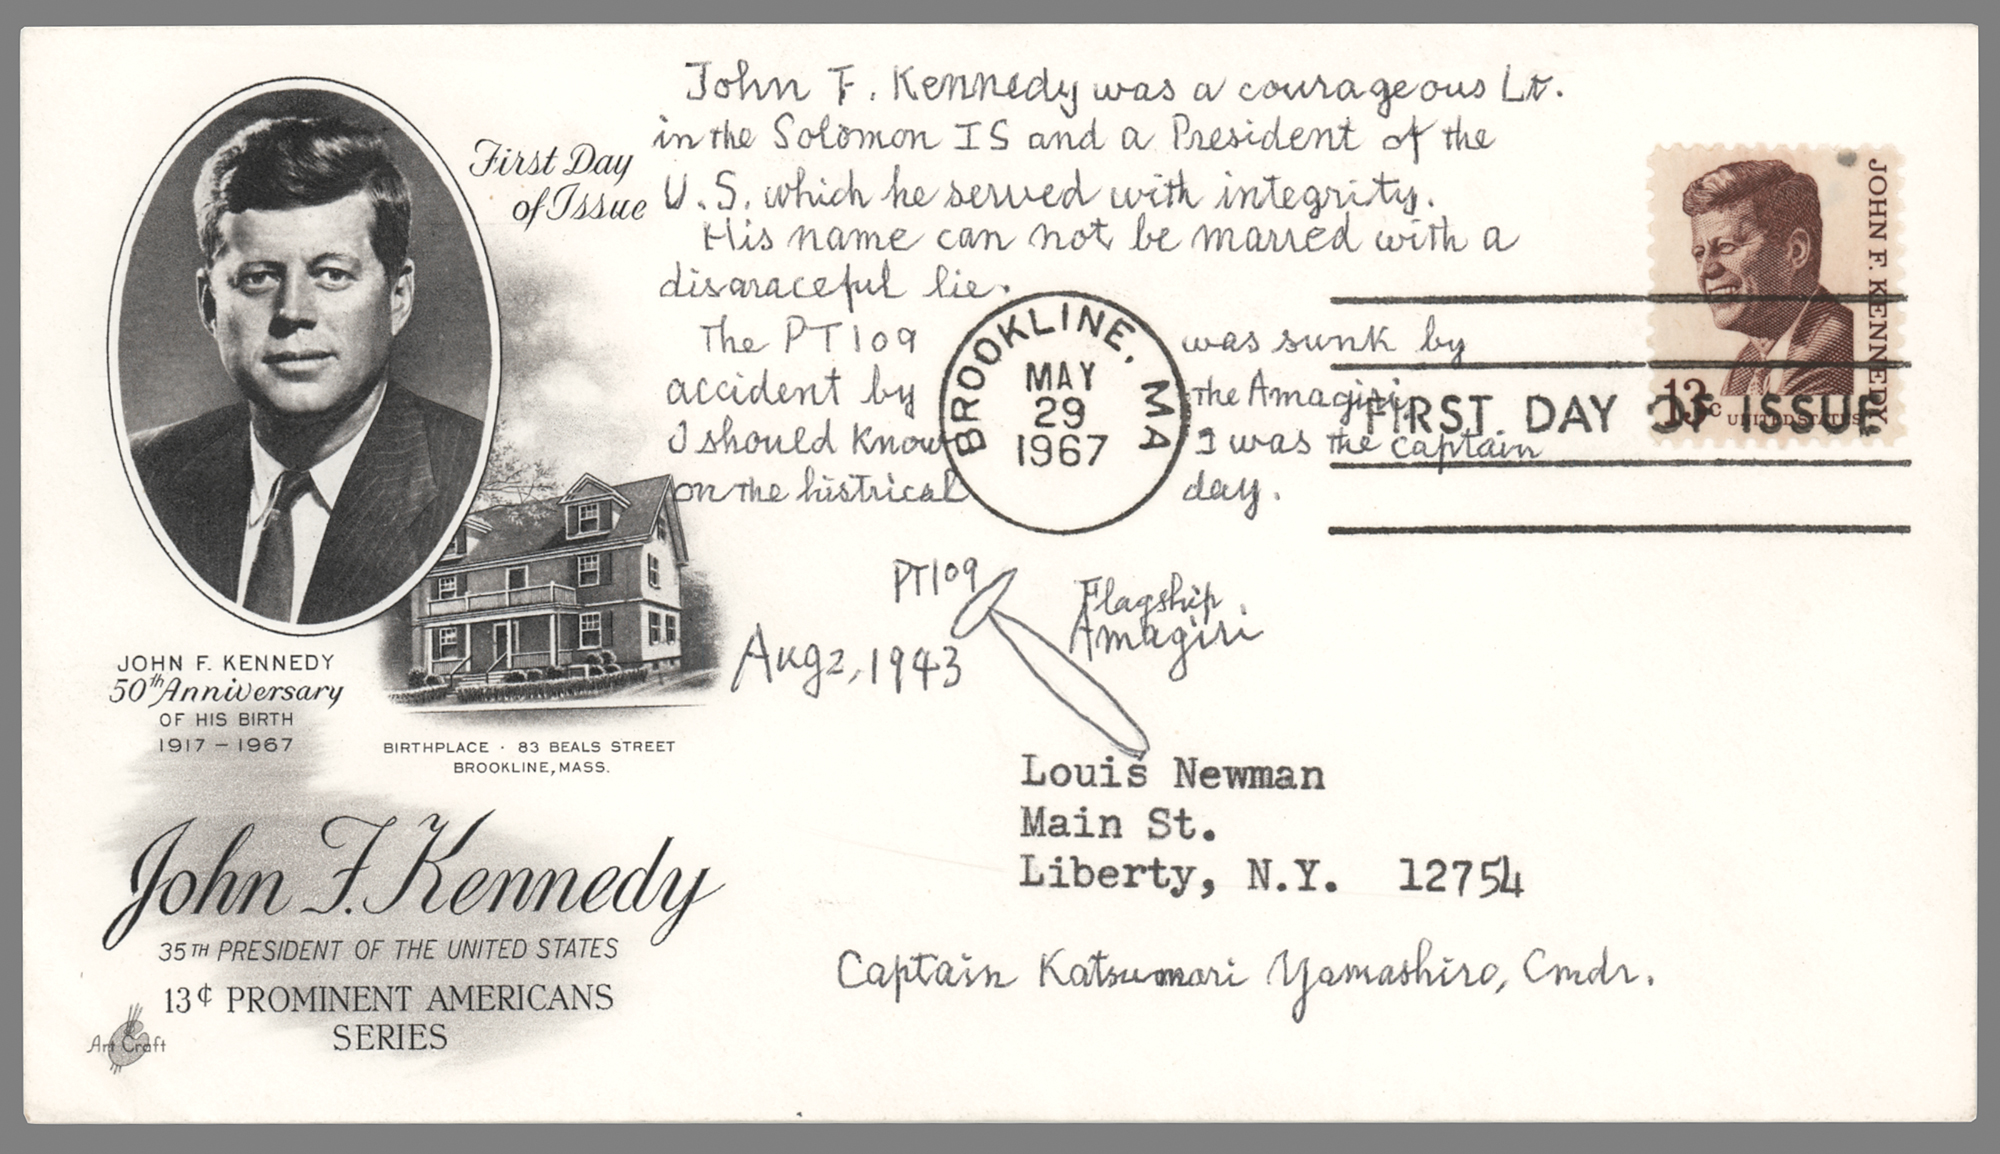 John F. Kennedy was a courageous Lt.
in the Solomon IS and a President of the
U.S. which he served with integrity.
His name can not be marred with a
disgraceful lie.
The PT109 was sunk by
accident by the Amagiri.
I should know I was the captain
on the histrical day.
First Day
of Issue
JOHN F. KENNEDY
13c
UNITED STATES
BROOKLINE, MA
MAY
29
1967
FIRST DAY OF ISSUE
PT109
Flagship
Amagiri
Aug 2, 1943
JOHN F. KENNEDY
50th Anniversary
OF HIS BIRTH
1917 – 1967
BIRTHPLACE · 83 BEALS STREET
BROOKLINE, MASS.
Louis Newman
Main St.
Liberty, N.Y. 12754
John F. Kennedy
35TH PRESIDENT OF THE UNITED STATES
13¢ PROMINENT AMERICANS
SERIES
Art Craft
Captain Katsumori Yamashiro, Cmdr.